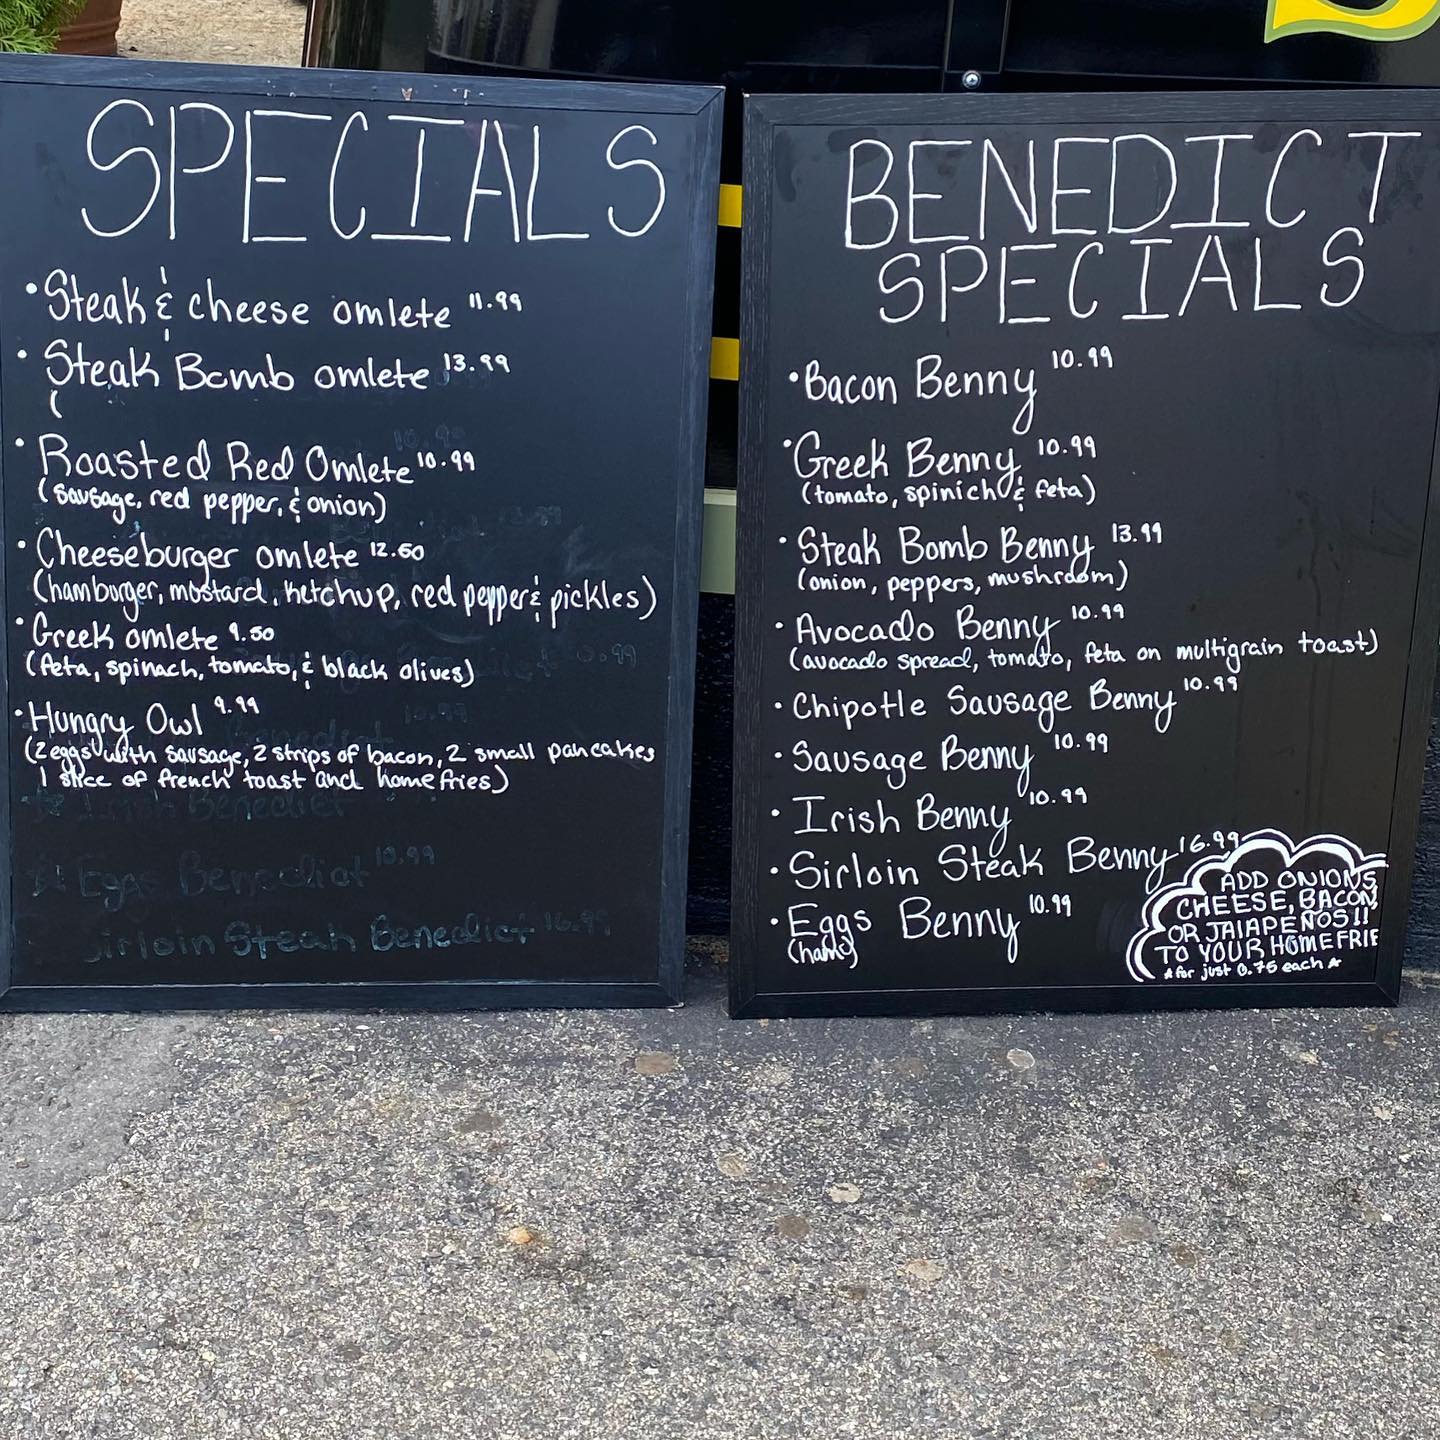 SPECIALS
• Steak & cheese omlete 11.99
• Steak Bomb omlete 13.99
(
• Roasted Red Omlete 10.99
(sausage, red pepper, & onion)
• Cheeseburger omlete 12.50
(hamburger, mustard, ketchup, red pepper & pickles)
• Greek omlete 9.50
(feta, spinach, tomato, & black olives)
• Hungry Owl 9.99
(2 eggs with sausage, 2 strips of bacon, 2 small pancakes
1 slice of french toast and home fries)
Irish Benedict
Eggs Benediat 10.99
Sirloin Steak Benedict 16.99
BENEDICT
SPECIALS
• Bacon Benny 10.99
• Greek Benny 10.99
(tomato, spinich & feta)
• Steak Bomb Benny 13.99
(onion, peppers, mushroom)
• Avocado Benny 10.99
(avocado spread, tomato, feta on multigrain toast)
• Chipotle Sausage Benny 10.99
• Sausage Benny 10.99
• Irish Benny 10.99
• Sirloin Steak Benny 16.99
• Eggs Benny 10.99
(ham)
ADD ONIONS,
CHEESE, BACON,
OR JAlAPEÑOS!!
TO YOUR HOMEFRIE
*for just 0.75 each*